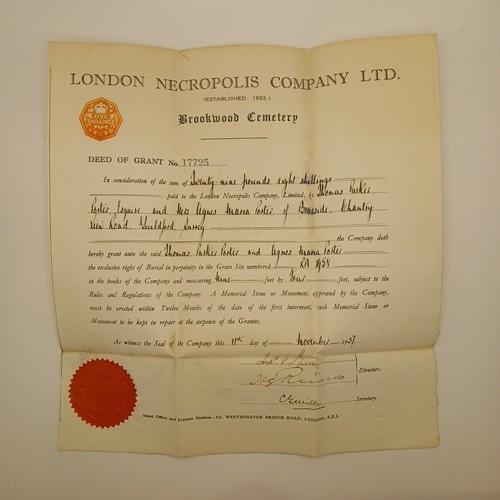 LONDON NECROPOLIS COMPANY LTD.
(ESTABLISHED 1852.)
FIVE
SHILLINGS
Brookwood Cemetery
DEED OF GRANT No. 17725
In consideration of the sum of Twenty-nine pounds, eight shillings
paid to the London Necropolis Company, Limited, by Thomas Parkes
Porter, Esquire and Mrs Agnes Maria Porter of Braeside, Chantry
View Road, Guildford, Surrey
the Company doth
hereby grant unto the said Thomas Parkes Porter and Agnes Maria Porter
the exclusive right of Burial in perpetuity to the Grave Site numbered
in the books of the Company and measuring nine feet by four feet, subject to the
Rules and Regulations of the Company. A Memorial Stone or Monument, approved by the Company,
must be erected within Twelve Months of the date of the first interment, such Memorial Stone or
Monument to be kept in repair at the expense of the Grantee.
As witness the Seal of the Company this 11th day of November
Directors.
Secretary.
Head Office and Private Station—121, WESTMINSTER BRIDGE ROAD, LONDON, S.E.1.